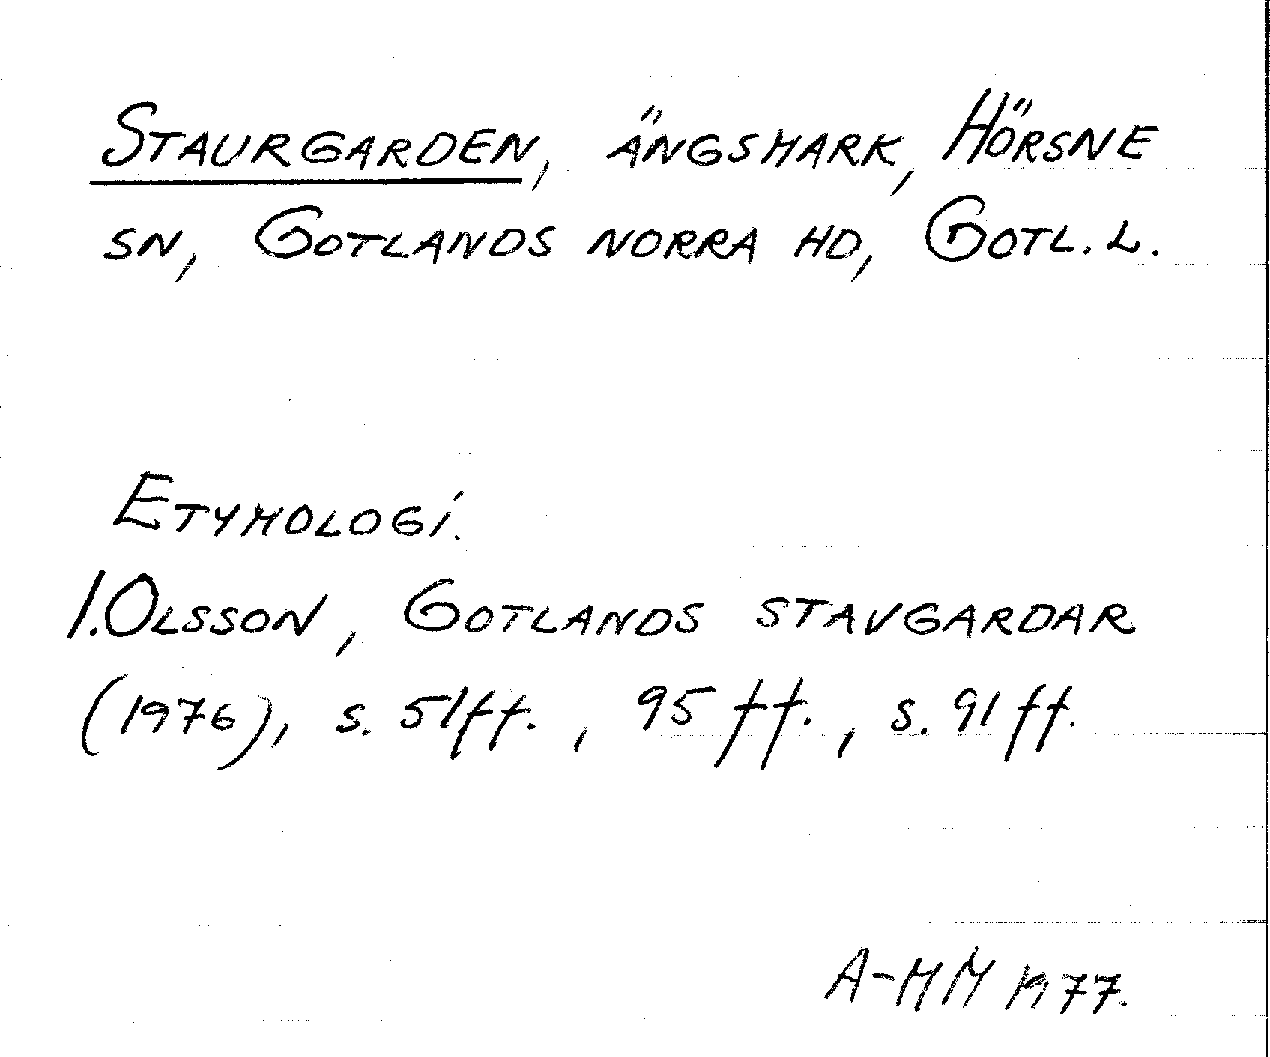 STAURGARDEN, ÄNGSMARK, HÖRSNE
SN, GOTLANDS NORRA HD, GOTL. L.
ETYMOLOGI.
I. OLSSON, GOTLANDS STAVGARDAR
(1976), S. 51ff., 95 ff., S. 91 ff.
A-MM 1977.